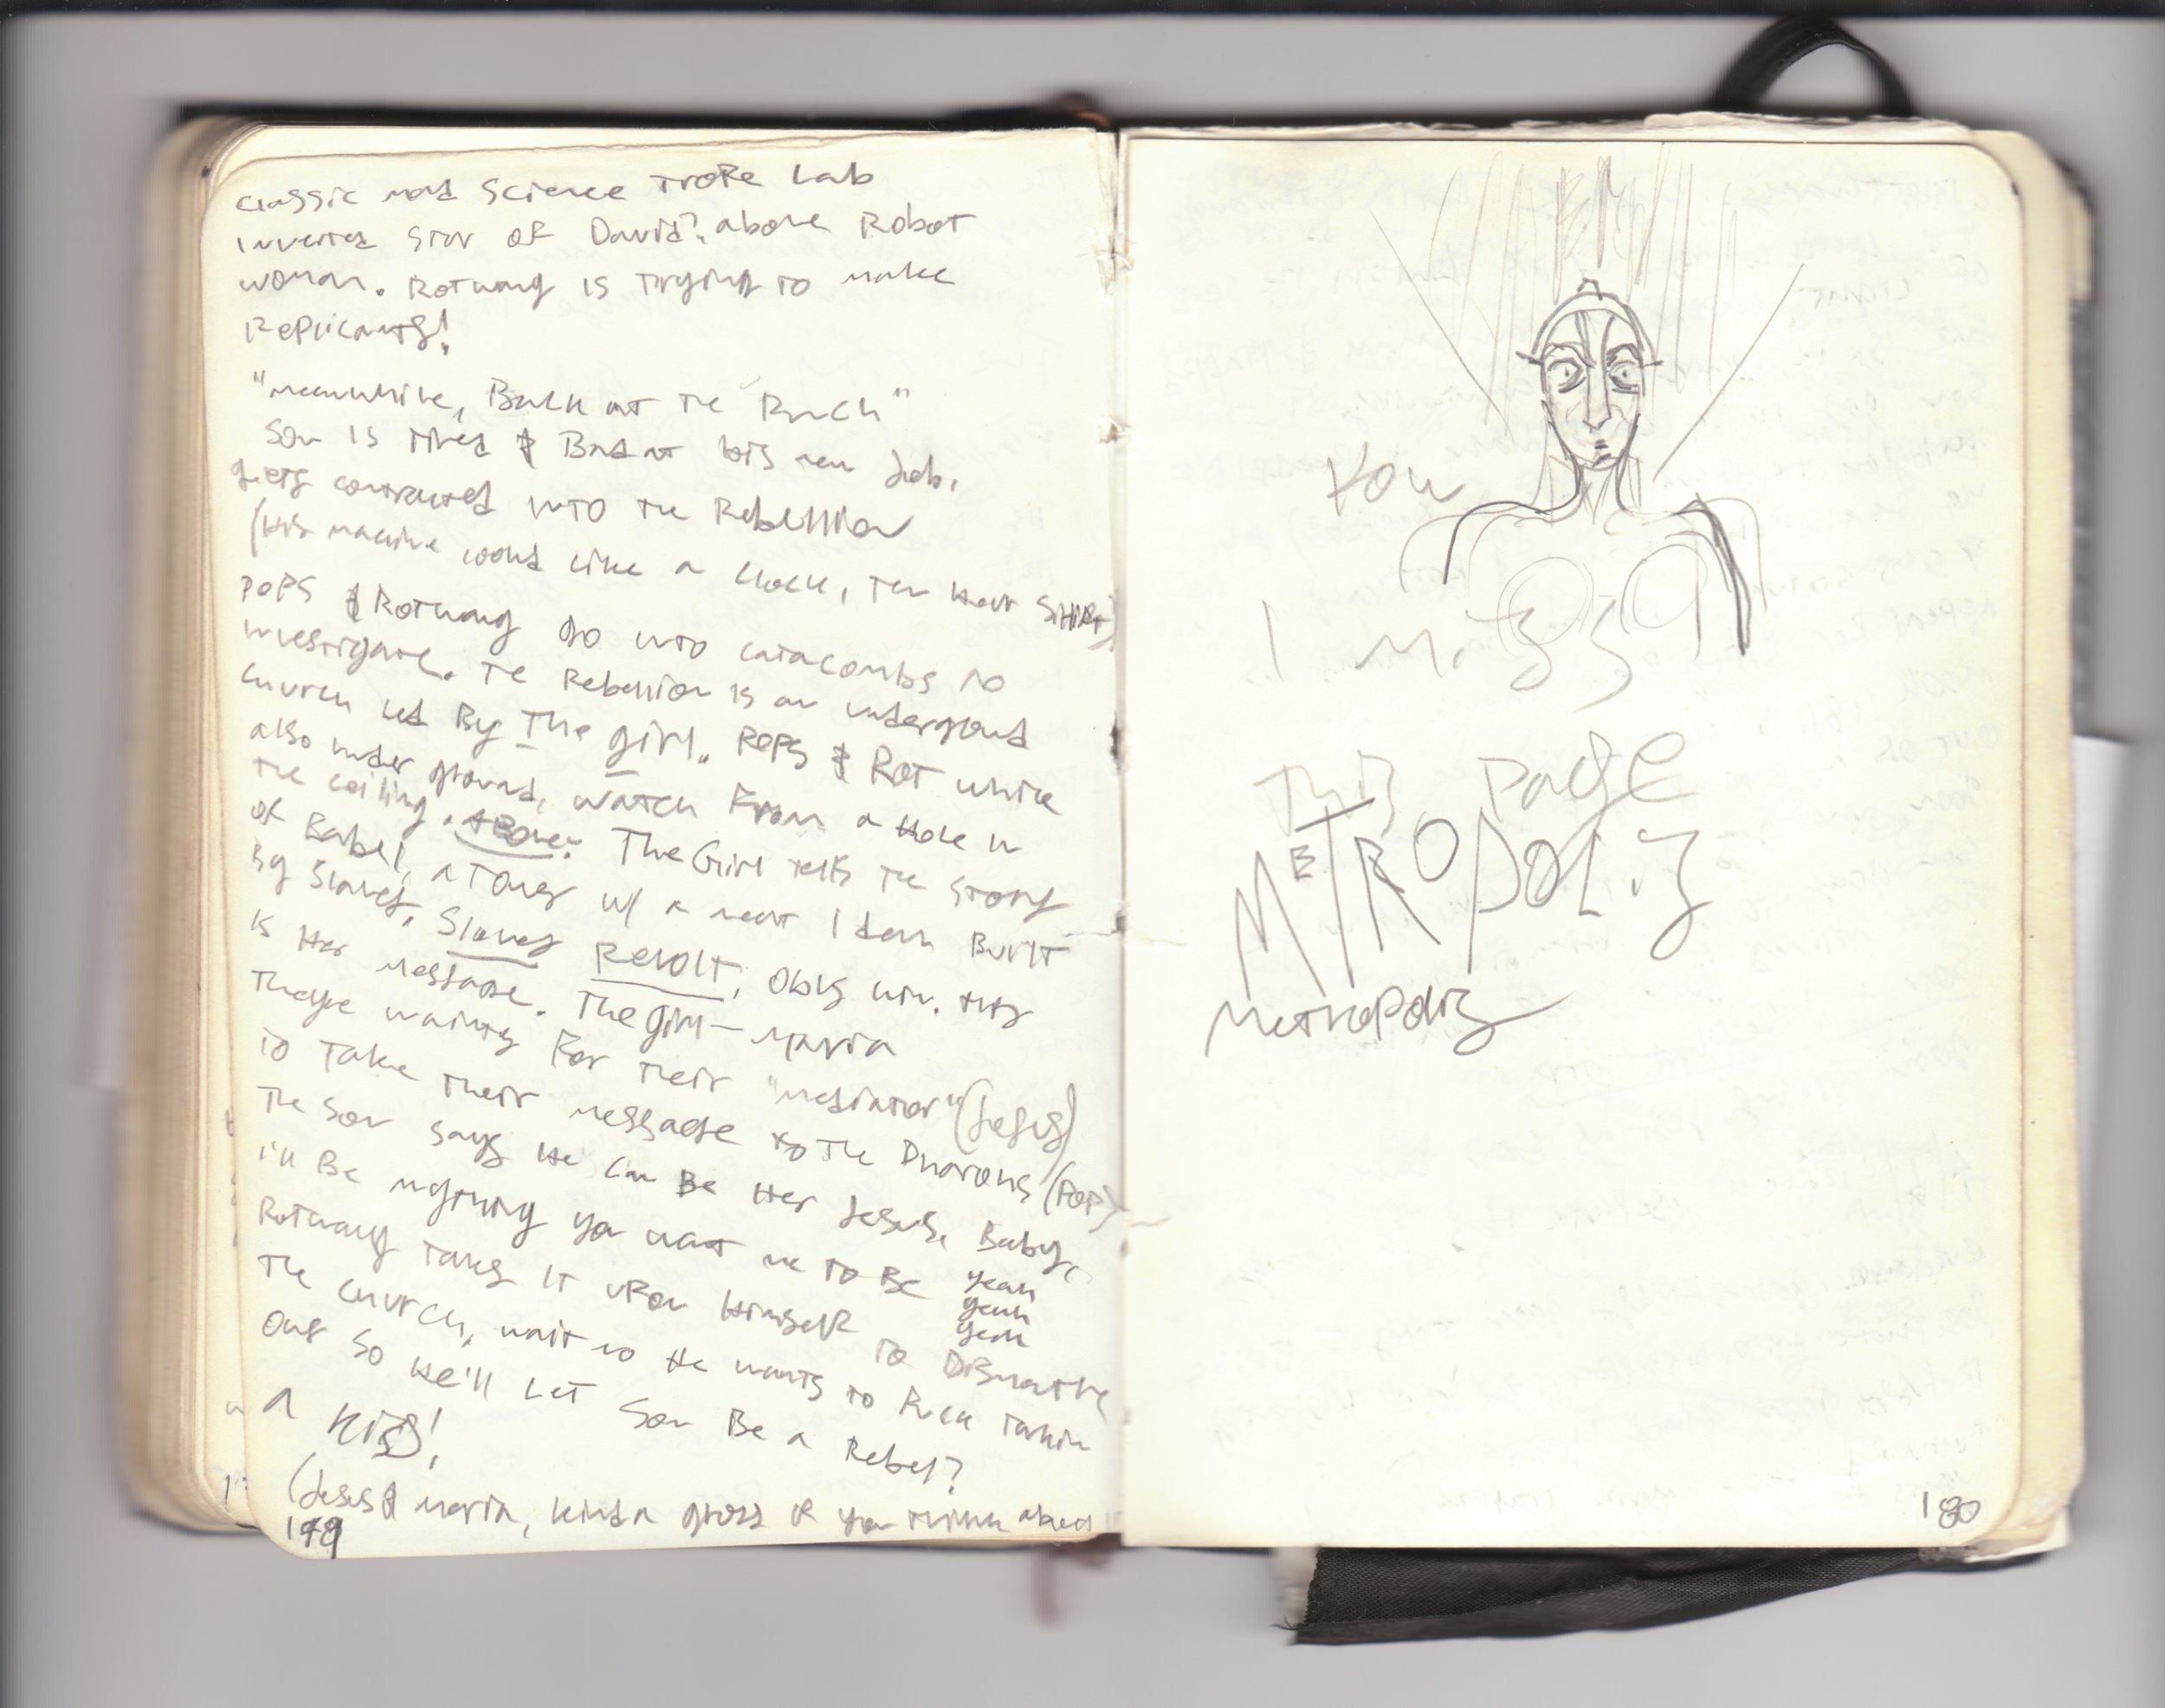 classic mad science trope Lab
inverted star of David? above Robot
woman. Rotwang is trying to make
Replicants!
"meanwhile, Back at the Ranch"
Son is tired & Bad at his new Job.
gets contracted into the Rebellion
(His machine looked like a clock, then heat SHIRT)
POPS & Rotwang go into catacombs to
investigate. The Rebellion is an undergound
church led By The girl. POPS & ROT while
also under ground, watch From a Hole in
the ceiling. Above. The Girl tells the story
of Babel, a Tower w/ a neat Idea Built
By Slaves. Slaves Revolt, obvs win. this
is Her message. The girl — Maria
They're waiting For their "mediator" (Jesus)
to take their message to the Pharaohs (POPS)
The Son says He can Be Her Jesus, Baby,
I'll Be anything you want me to Be yeah
yeah
yeah
Rotwang takes it upon Himself to Dismantle
the church, wait no He wants to Fuck
one so He'll Let Son Be a Rebel?
A KiSS!
(Jesus & Maria, kinda gross if you think about
179
You
I miss
This page
METROPOLiS
Metropolis
180